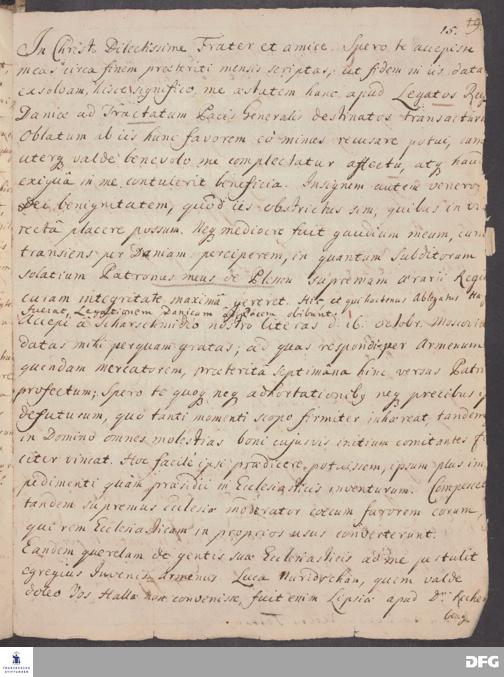 15. 19.
In Christo Dilectissime Frater et amice. Spero te accepisse
meas circa finem praeteriti mensis scriptas; ut fidem in iis data
exsolvam, hisce significo, me aestatem hanc apud Legatos Reg
Daniae ad Tractatum Pacis Generalis destinatos transactur
Oblatum ab iis hunc favorem eò minus recusare potui, cum
uterq valde benevolo me complectatur affectu, atq hau
exiguâ in me contulerit beneficia. Insignem autem veneror
Dei benignitatem, quòd iis obstrictus sim, quibus in vi
rectâ placere possum. Neq mediocre fuit gaudium meum, cum
transiens per Daniam perciperem, in quantum Subditorum
solatium Patronus meus de Plesse supremam aerarii Regii
curam integritate maximâ gereret. Hic et qui hactenus Ablegatus Ha
fuerat, Legationem Danicam ad Pacem obibunt.
Accepi a Scharschmidio nostro literas d. 16. octobr. Moscovia
datas mihi perquam gratas; ad quas respondi per Armenum
quendam mercatorem, praeterita septimâna hinc versus Patri
profectum; Spero te quoq neq adhortationibq neq precibus
defuturum, quò tanti momenti scopo firmiter inhaereat, tandem
in Domino omnes molestias boni cujusvis initium comitantes f
citer vincat. Hoc facilè ipsi praedicere potuissem, ipsum plus im
pedimenti quàm praesidii in Ecclesiasticis inventurum. Compescat
tandem supremus ecclesiae moderator coecum favorem eorum,
qui rem Ecclesiasticam in proprios usus converterunt.
Eandem querelam de gentis suae Ecclesiasticis ad me pertulit
egregius Juvenis Armenus Luca Nuridschan, quem valde
doleo Vos Hallae non convenisse, fuit enim Lipsiae apud Dn.